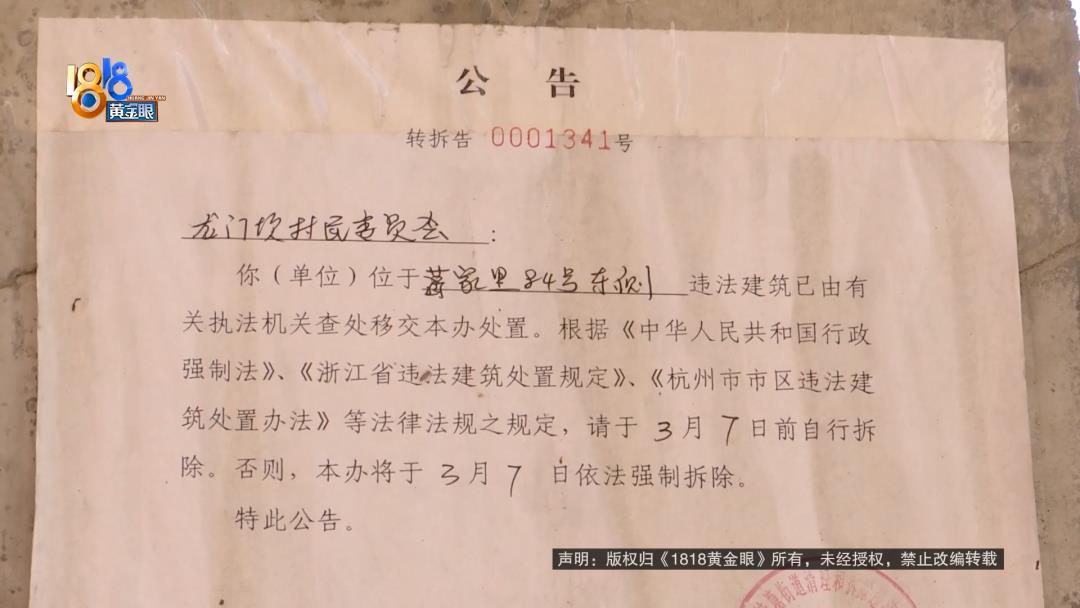 1818
HUANG JIN YAN
黄金眼
公 告
转拆告 0001341号
龙门坎村民委员会：
你（单位）位于蒋家里84号东侧 违法建筑已由有
关执法机关查处移交本办处置。根据《中华人民共和国行政
强制法》、《浙江省违法建筑处置规定》、《杭州市市区违法建
筑处置办法》等法律法规之规定，请于 3 月 7 日前自行拆
除。否则，本办将于 3 月 7 日依法强制拆除。
特此公告。
声明：版权归《1818黄金眼》所有，未经授权，禁止改编转载